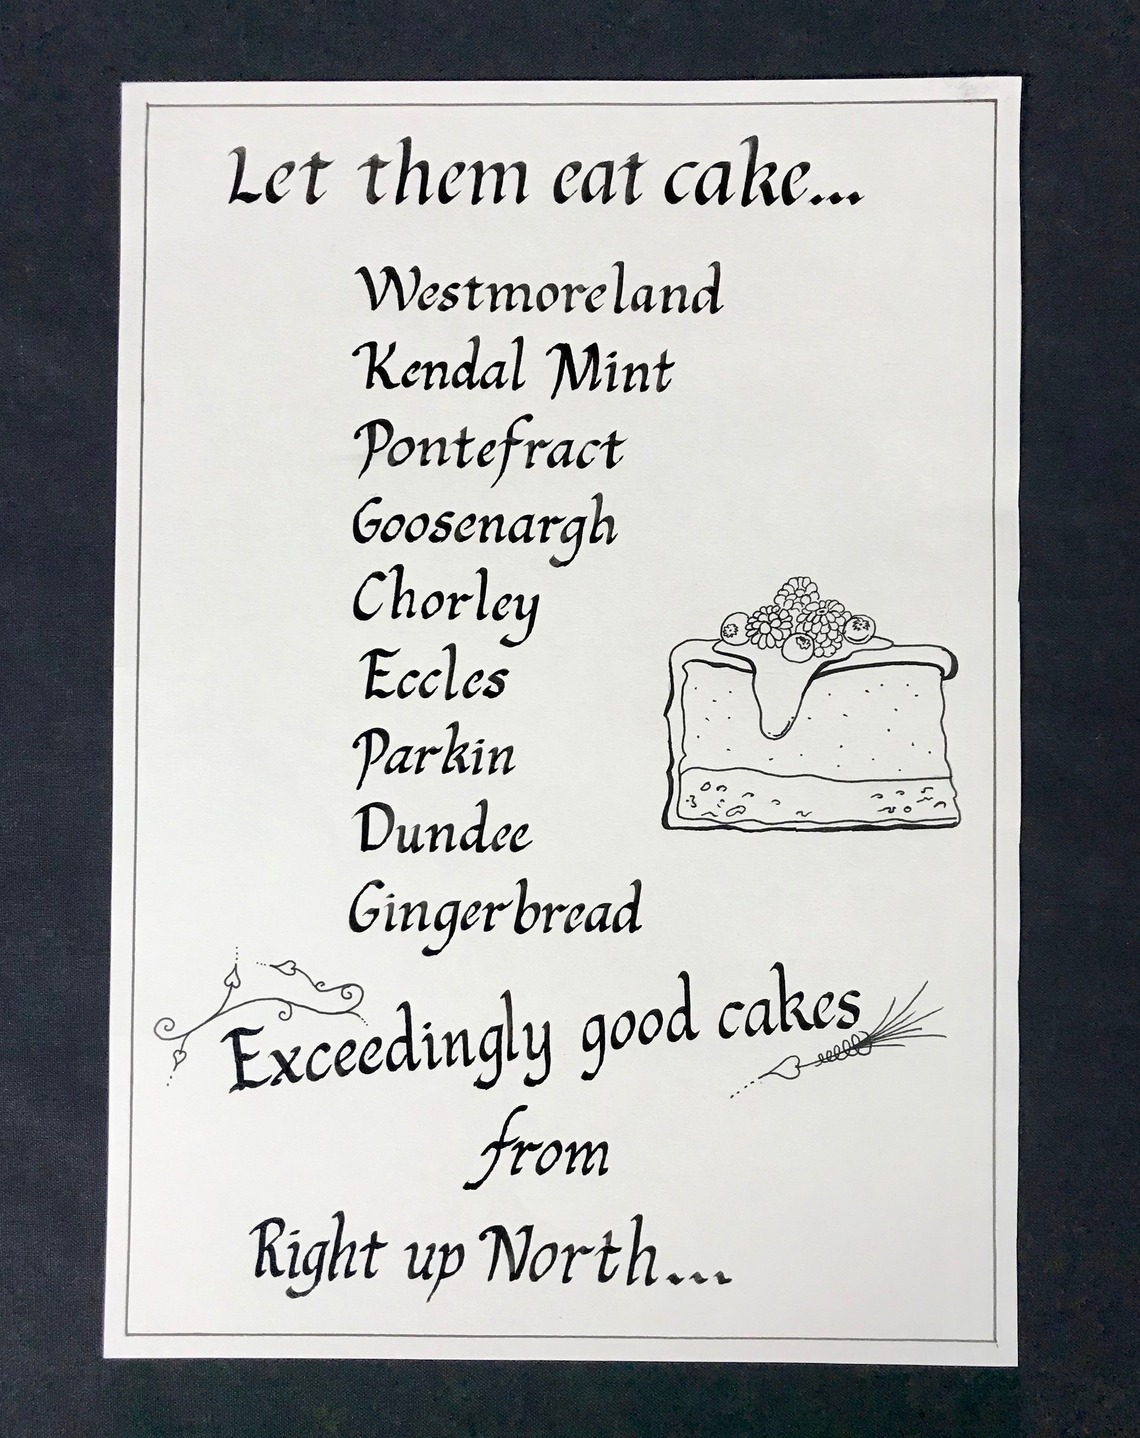 Let them eat cake...
Westmoreland
Kendal Mint
Pontefract
Goosenargh
Chorley
Eccles
Parkin
Dundee
Gingerbread
Exceedingly good cakes
from
Right up North...